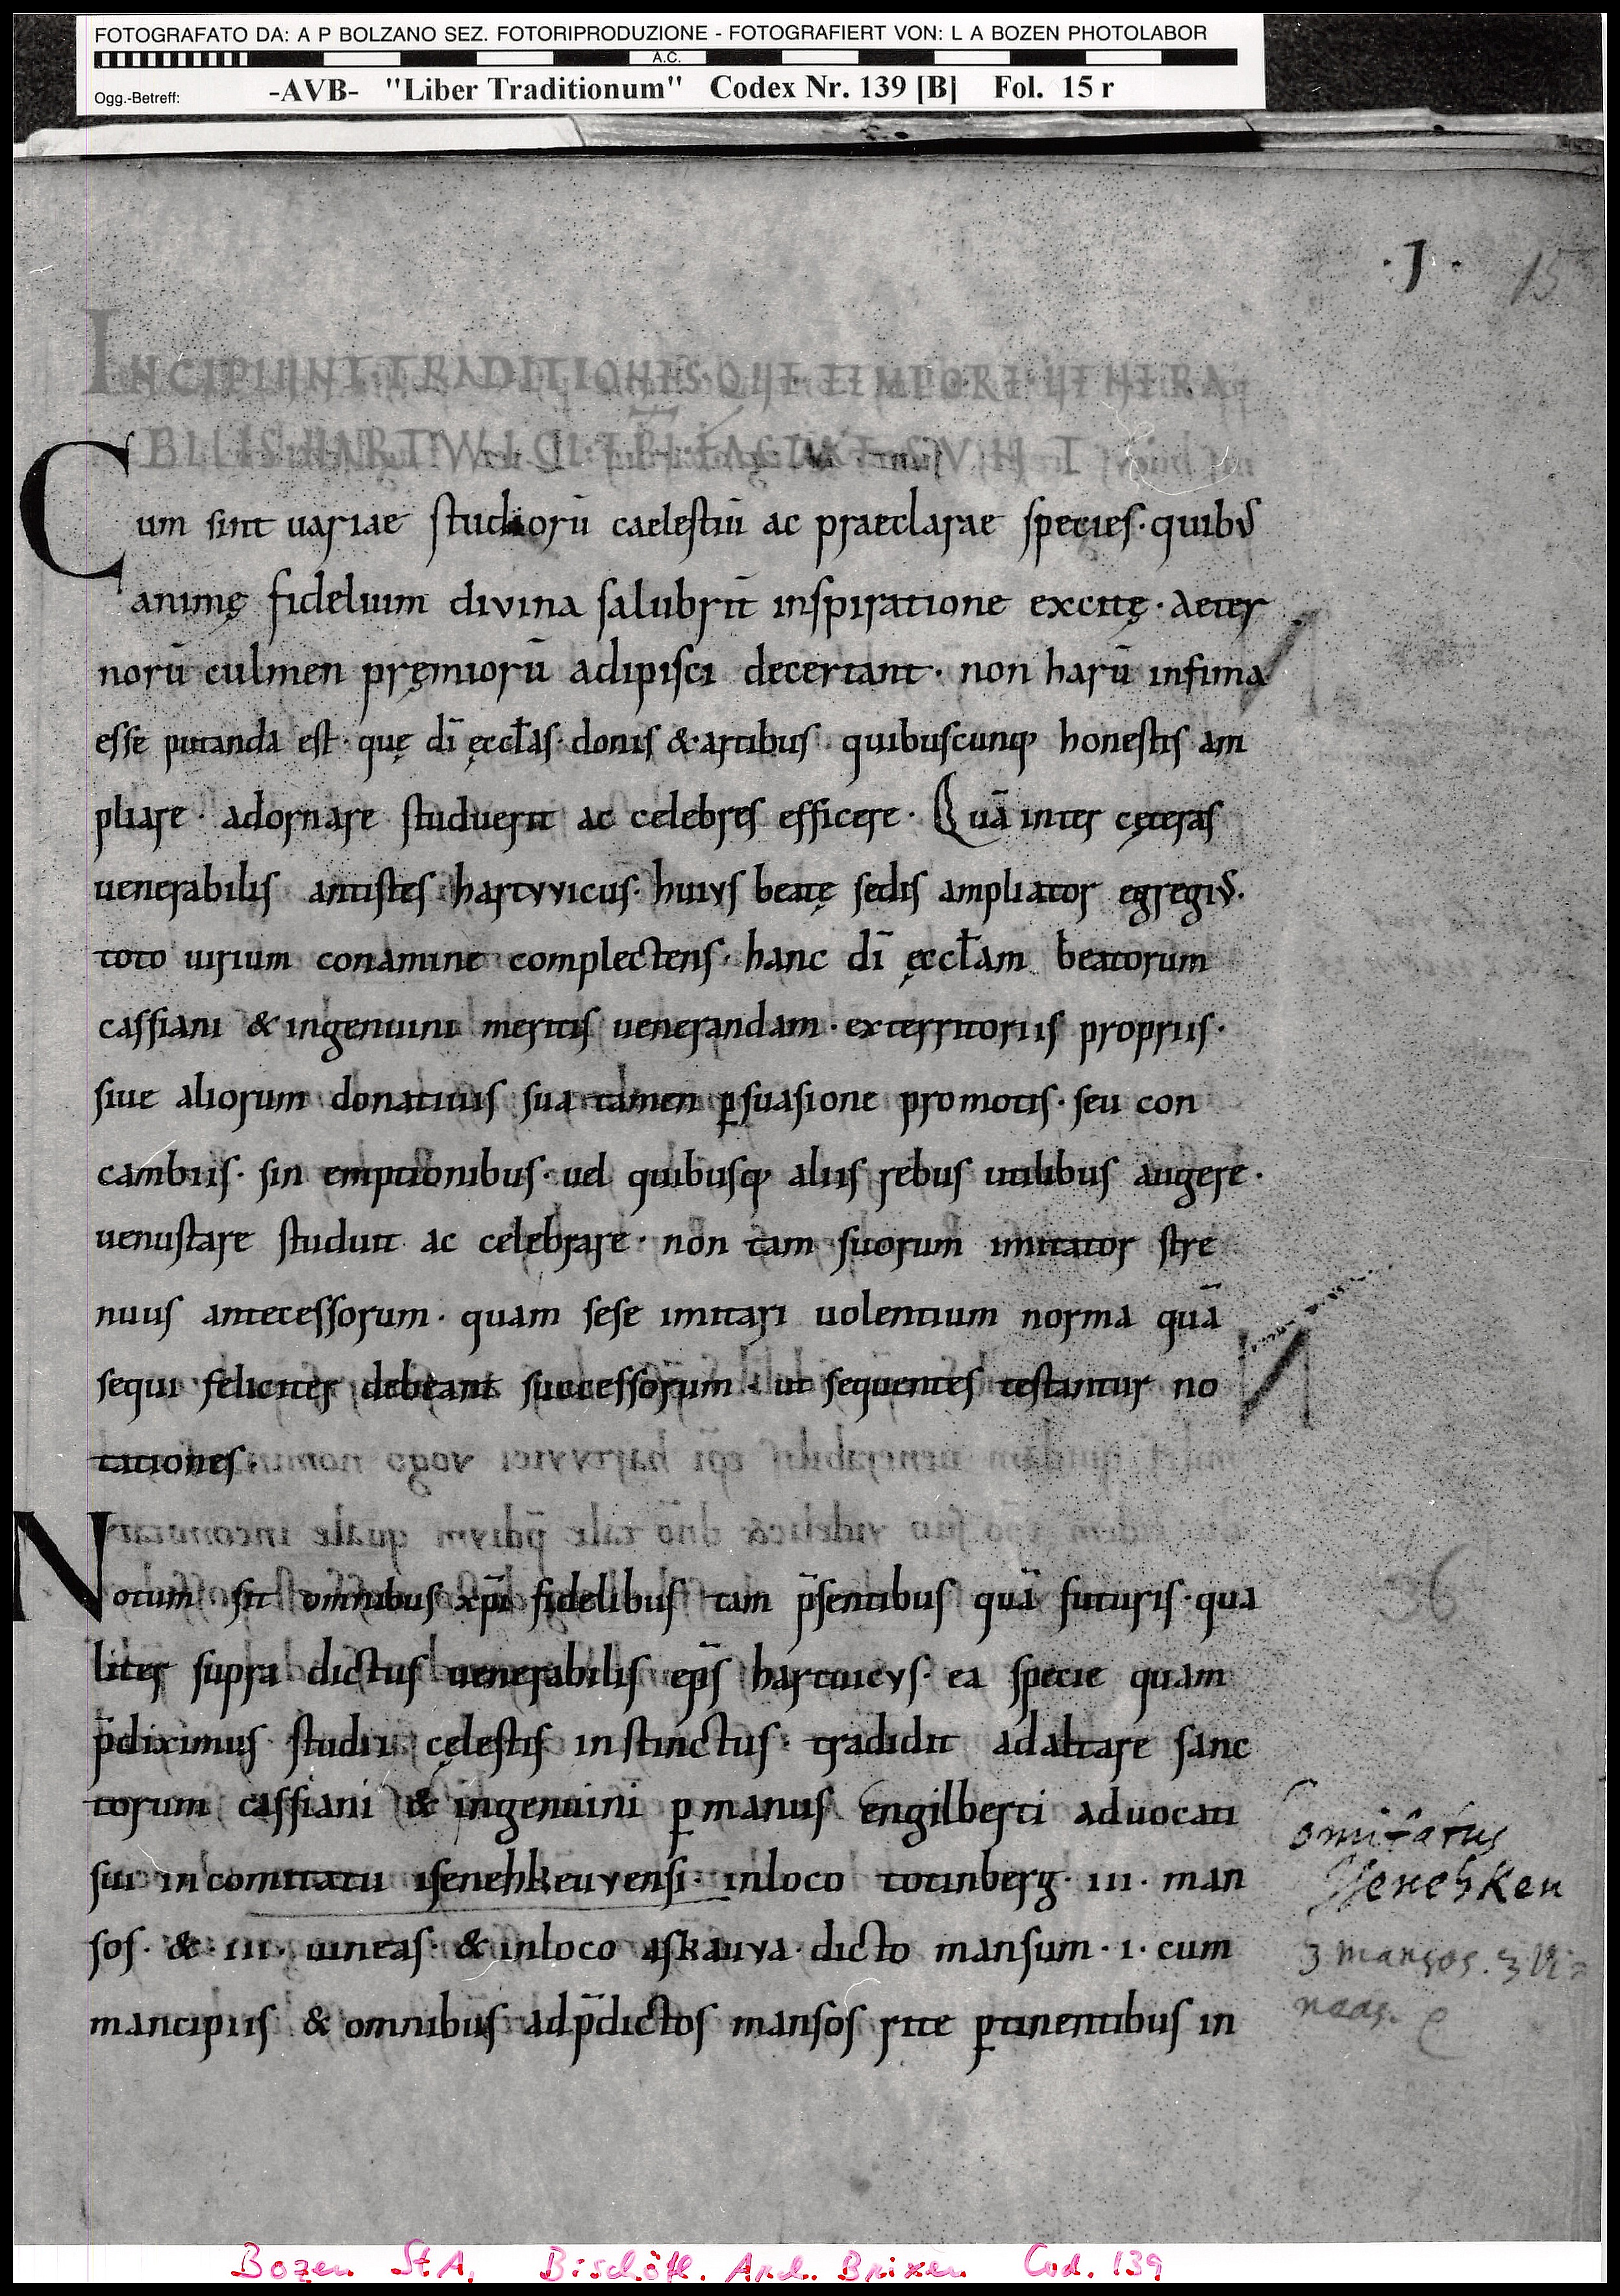 FOTOGRAFATO DA: A P BOLZANO SEZ. FOTORIPRODUZIONE - FOTOGRAFIERT VON: L A BOZEN PHOTOLABOR
A.C.
Ogg.-Betreff: -AVB- "Liber Traditionum" Codex Nr. 139 [B] Fol. 15 r
·1· 15
INCIPIUNT·TRADITIONES·QUE·TEMPORE·VENERA
BILIS·HARTWICI·EPI·
Cum sint uariae studiorū caelestiū ac praeclarae species·quibꝰ
animę fidelium divina salubrit̄ inspiratione excitę·aeter
norū culmen pręmiorū adipisci decertant·non harū infima
esse putanda est·quę dī ęccl̄as·donis &·artibus quibuscunq; honestis am
pliare·adornare studuerit ac celebres efficere·Quā inter cęteras
uenerabilis antistes hartvvicus·huivs beatę sedis ampliator egregiꝰ·
toto uirium conamine complectens·hanc dī ęccl̄am beatorum
cassiani & ingenuini meritis uenerandam·ex territoriis propriis·
siue aliorum donatiuis sua tamen ꝑsuasione promotis·seu con
cambiis·sin emptionibus·uel quibusq; aliis rebus utilibus augere·
uenustare studuit ac celebrare·non tam suorum imitator stre
nuus antecessorum·quam sese imitari uolentium norma quā
sequi feliciter debeant successorum·ut sequentes testantur no
tationes·
Notum sit omnibus xp̄i fidelibus tam p̄sentibus quā futuris·qua
36
liter supra dictus uenerabilis ep̄s hartuicvs·ea specie quam
p̄diximus studii cęlestis instinctus·tradidit ad altare sanc
torum cassiani & ingenuini ꝑ manus engilberti aduocati
sui in comitatu isenehkeuvensi·inloco totinberg·III·man
sos·&·III·uineas·& inloco askauva·dicto mansum·I·cum
mancipiis & omnibus ad p̄dictos mansos rite ꝑtinentibus in
Comitatus
Isenehken
3 mansos. 3 Vi=
neas.
Bozen St.A. Bischöfl. Arch. Brixen Cod. 139